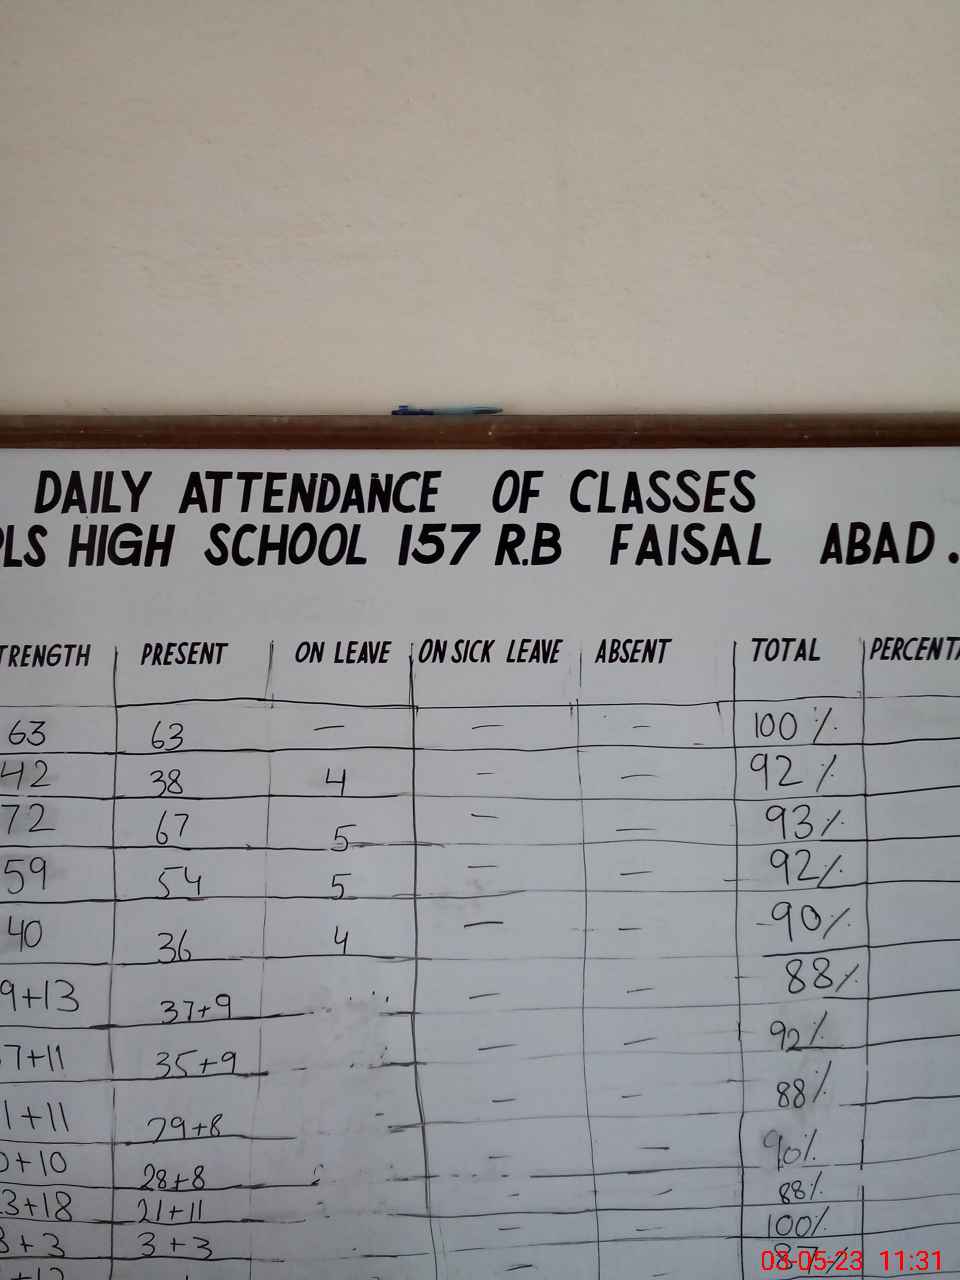 DAILY ATTENDANCE OF CLASSES
HIGH SCHOOL 157 R.B FAISAL ABAD.
TRENGTH PRESENT ON LEAVE ON SICK LEAVE ABSENT TOTAL PERCENTA
63 63 — — — 100 %
42 38 4 — — 92 %
72 67 5 — — 93 %
59 54 5 — — 92 %
40 36 4 — — 90 %
9+13 37+9 — — 88 %
7+11 35+9 — — 92 %
1+11 29+8 - — — 88 %
0+10 28+8 — — 90 %
3+18 21+11 — — 88 %
3+3 3+3 — — 100 %
08-05-23 11:31